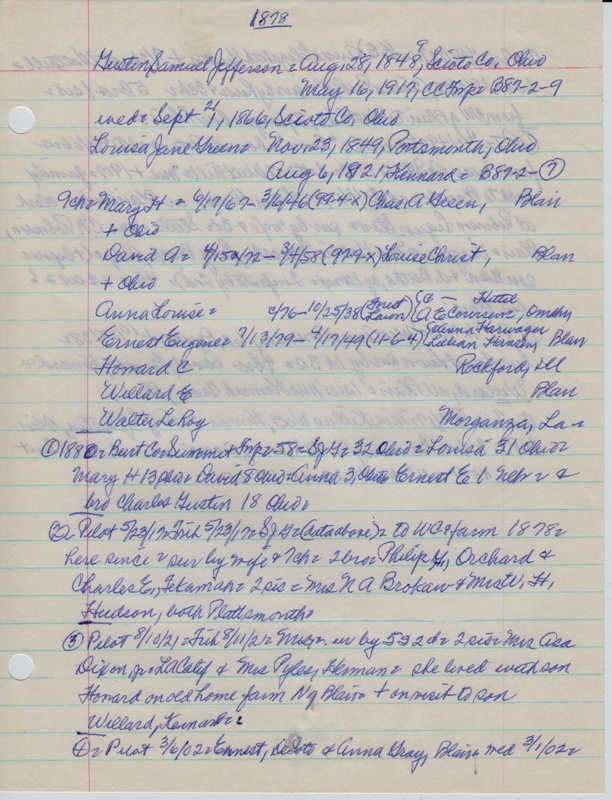 1878
Hustin Samuel Jefferson = Aug. 28, 1848, 9 Scioto Co, Ohio
May 16, 1917, CC Twp = B87-2-9
wed = Sept 2/1, 1866, Scioto Co, Ohio
Louisa Jane Green = Nov. 23, 1849, Portsmouth, Ohio
Aug 6, 1921 Kennard = B87-2-7
7ch = Mary H = 6/17/67 - 3/6/46 (99-4-X) Chas A Green, Blair
+ Ohio
David A = 4/15 /72 - 3/4/58 (929-X) Louise Christ, Blair
+ Ohio
Anna Louise = 4/76 - 10/25/38 (Forest Lawn) { C — Huttel A E Coursen, Omaha
Ernest Eugene = 7/13/79 - 4/17/49 (11-6-4) { Anna Harwager Lillian Blair
Howard C Rockford, Ill
Willard E Blair
Walter LeRoy Morganza, La =
① 1880 = Burt Co Summit Twp = 58 = SJH = 32 Ohio = Louisa 31 Ohio =
Mary H 13 Ohio = David 8 Ohio = Anna 3, Ohio Ernest E 1 Nebr = &
bro Charles Hustin 18 Ohio =
② = Pilot 5/23/17 = Trib 5/23/17 = SJH = (data above) = to WC & farm 1878 =
here since = sur by wife & 7ch = 2bro = Philip H, Orchard &
Charles E, Tekamah = 2sis = Mrs N A Brokaw & Mrs W, H,
Hudson, both Plattsmouth =
③ Pilot 8/10/21 = Trib 8/11/21 = Mrs = sur by 5s 2d = 2sis = Mrs Asa
Dixon LA Calif & Mrs Pyles, Herman = she lived with son
Howard on old home farm N of Blair = + on visit to son
Willard, Kennard =
④ = Pilot 3/6/02 = Ernest, DeSoto & Anna Gray, Blair = wed 3/1/02 =